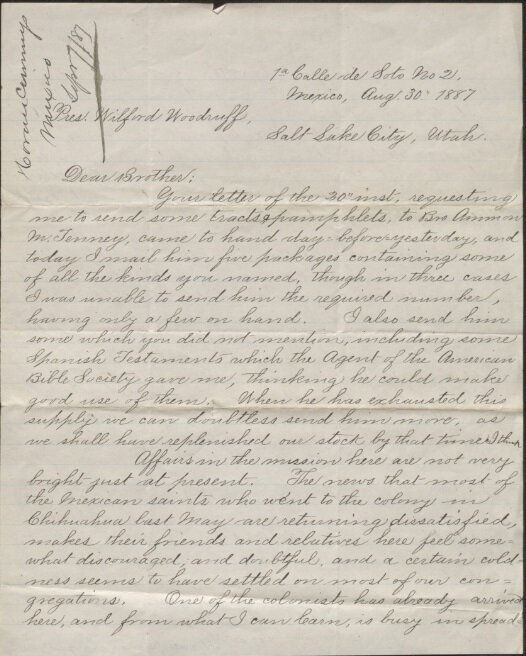 Horace Cummings
Mexico
Sep 7/87
1ª Calle de Soto No 2.
Mexico, Aug. 30" 1887
Pres. Wilford Woodruff,
Salt Lake City, Utah.
Dear Brother:
Your letter of the 30" inst, requesting
me to send some tracts & pamphlets, to Bro Ammon
M. Tenney, came to hand day-before-yesterday, and
today I mail him five packages containing some
of all the kinds you named, though in three cases
I was unable to send him the required number,
having only a few on hand. I also send him
some which you did not mention, including some
Spanish Testaments which the Agent of the American
Bible Society gave me, thinking he could make
good use of them. When he has exhausted this
supply we can doubtless send him more, as
we shall have replenished our stock by that time I think
Affairs in the mission here are not very
bright just at present. The news that most of
the Mexican saints who went to the colony in
Chihuahua last May are returning dissatisfied,
makes their friends and relatives here feel some-
what discouraged, and doubtful, and a certain cold-
ness seems to have settled on most of our con-
gregations. One of the colonists has already arrived
here, and from what I can learn, is busy in spread-